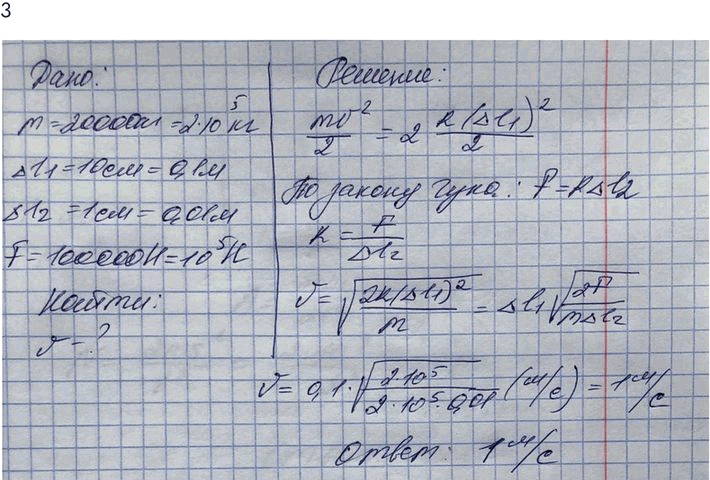 3
Дано:
m = 200000кг = 2·10⁵ кг
Δl₁ = 10см = 0,1м
Δl₂ = 1см = 0,01м
F = 100000Н = 10⁵ Н
Найти:
v - ?
Решение:
mv²/2 = 2 k(Δl₁)²/2
По закону Гука: F = kΔl₂
k = F/Δl₂
v = √(2k(Δl₁)²/m) = Δl₁√(2F/mΔl₂)
v = 0,1·√(2·10⁵/2·10⁵·0,01) (м/с) = 1 м/с
Ответ: 1 м/с